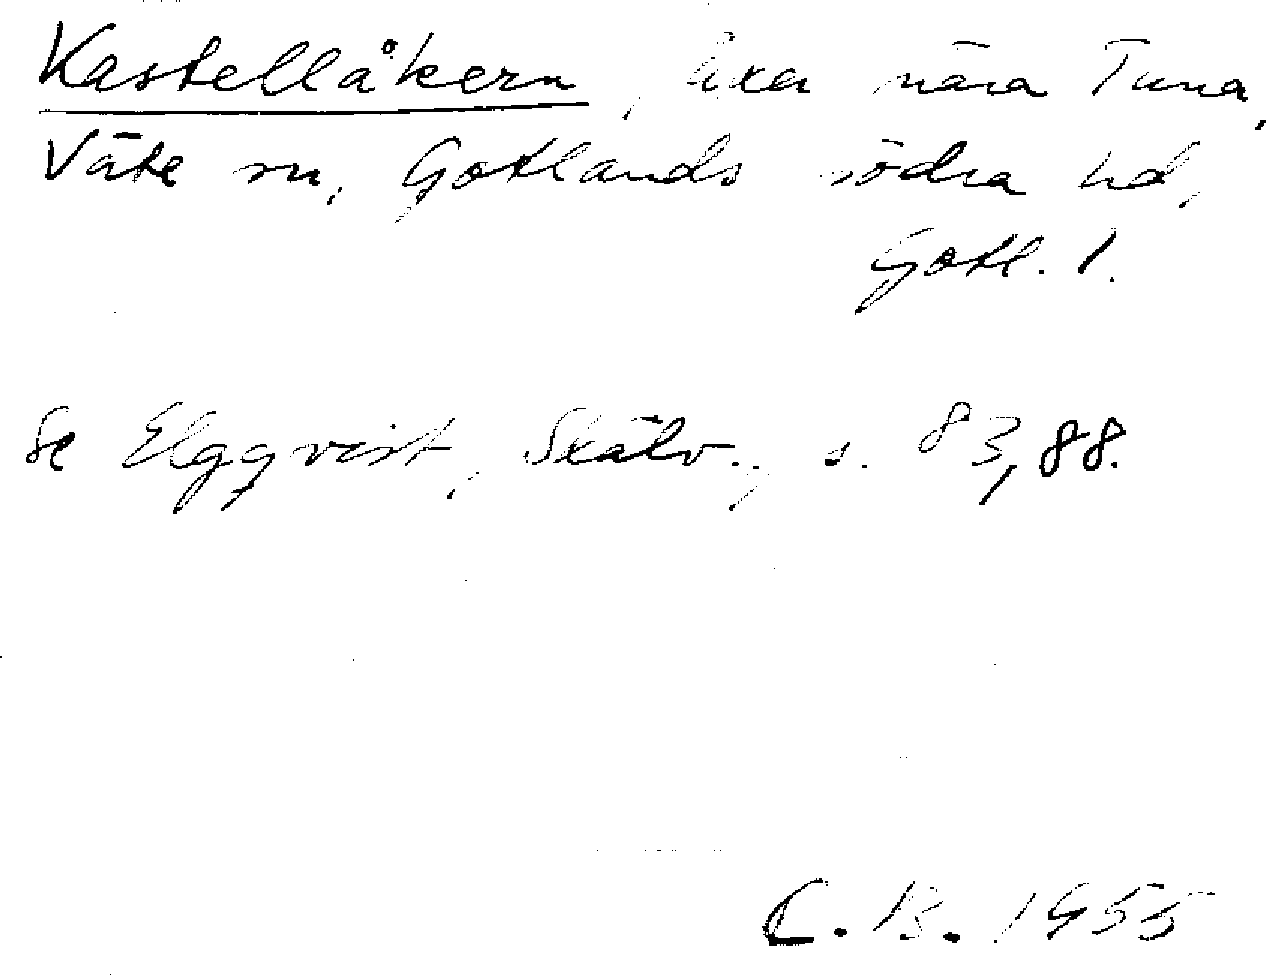 Kastellåkern, åker nära Tuna,
Väte sn, Gotlands södra hd,
Gotl. l.
Se Elgqvist, Skälv., s. 83, 88.
C. B. 1955